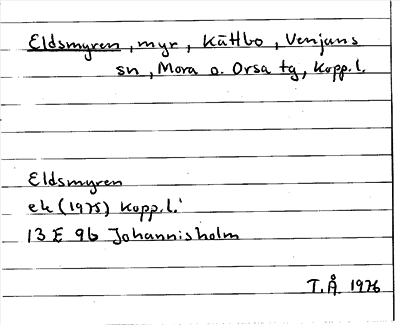 Eldsmyren, myr, Kättbo, Venjans
sn, Mora o. Orsa tg, Kopp.l.
Eldsmyren
ek (1975) Kopp.l.
13 E 9b Johannisholm
T.Å 1976